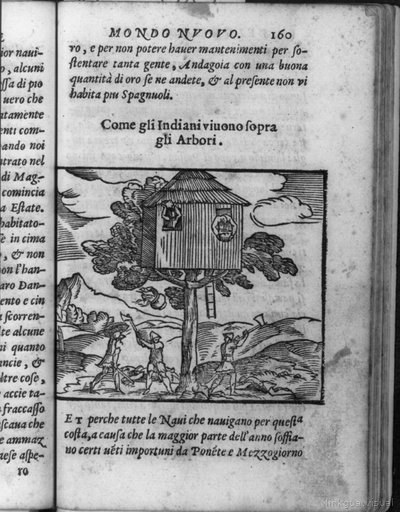 ior naui-
o, alcuni
ssa di pio
uero che
ntamente
enti com-
ando noi
ntrato nel
di Mag-
comincia
a Estate.
habitato-
se in cima
o, & non
on l'han-
aro Dan-
ento e cin
a scorren-
lte alcune
ni quanto
ancie, &
ltre cose,
e accie ta-
fraccasso
scaua che
e ammaz
nese aspe-
ro
MONDO NVOVO. 160
ro, e per non potere hauer mantenimenti per so-
stentare tanta gente, Andagoia con una buona
quantità di oro se ne andete, & al presente non vi
habita piu Spagnuoli.
Come gli Indiani viuono sopra
gli Arbori.
ET perche tutte le Naui che nauigano per questa
costa, a causa che la maggior parte dell'anno soffia-
uo certi uẽti importuni da Ponẽte e Mezzogiorno